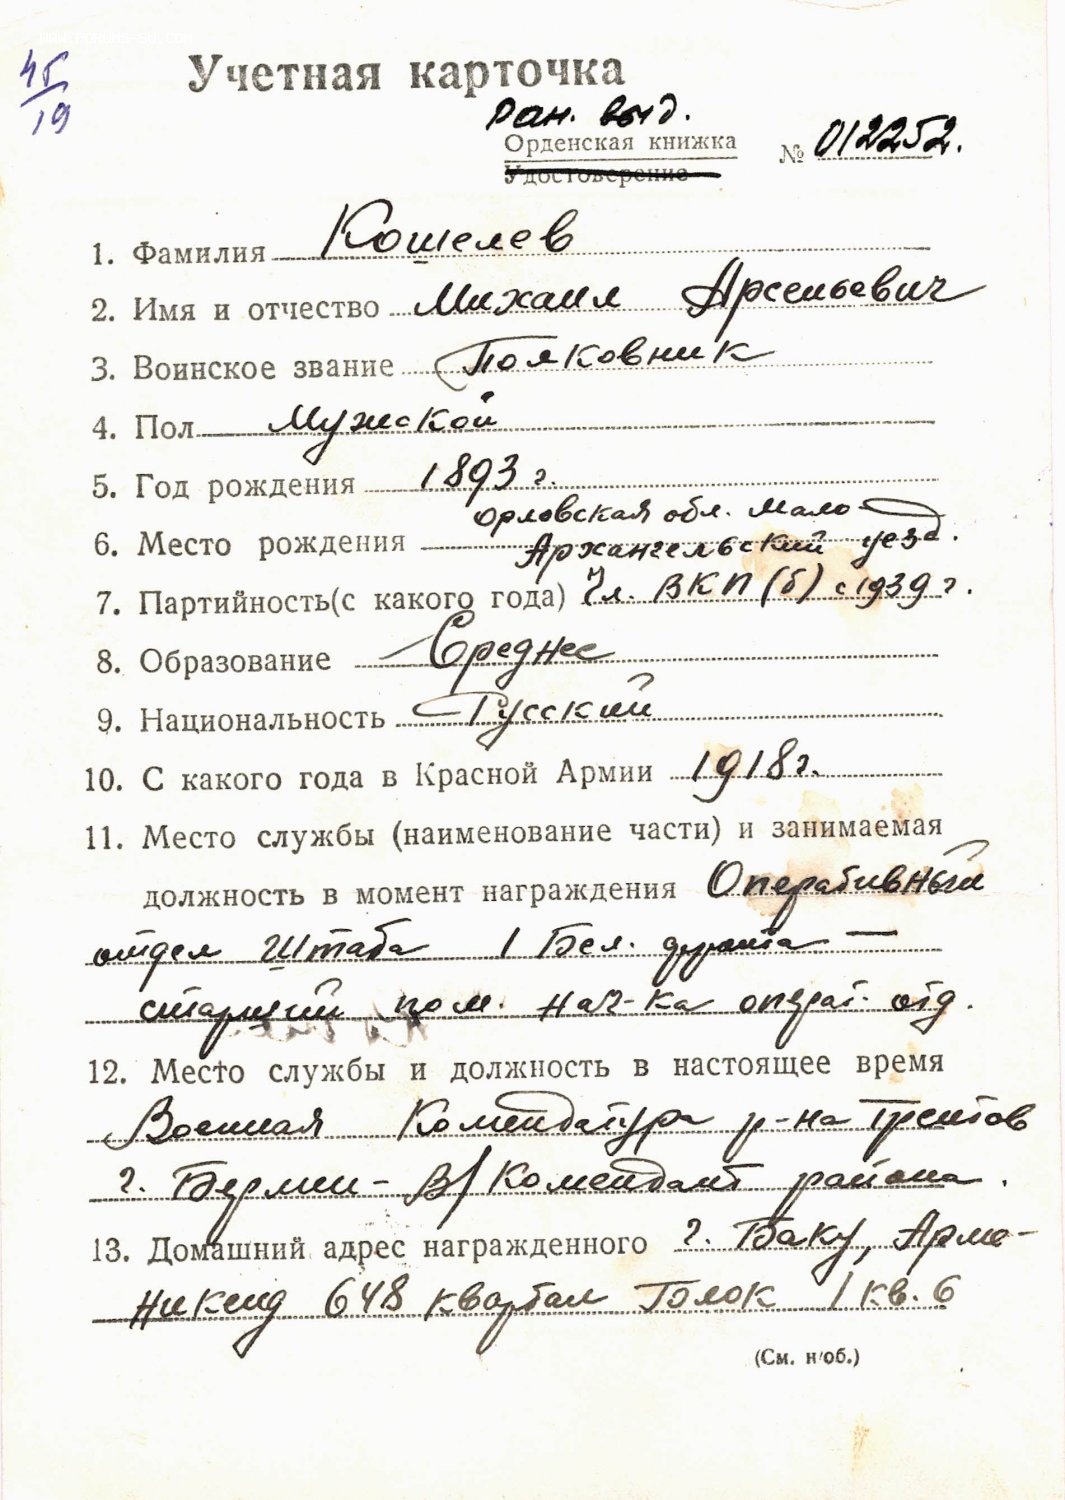 WWW.FORUMS-SU.COM
45
19
Учетная карточка
ран. выд.
Орденская книжка
Удостоверение
№ 012252.
1. Фамилия Кошелев
2. Имя и отчество Михаил Арсеньевич
3. Воинское звание Полковник
4. Пол Мужской
5. Год рождения 1893 г.
Орловская обл. Мало
6. Место рождения Архангельский уезд.
7. Партийность(с какого года) Чл. ВКП(б) с 1939 г.
8. Образование Среднее
9. Национальность Русский
10. С какого года в Красной Армии 1918 г.
11. Место службы (наименование части) и занимаемая
должность в момент награждения Оперативный
отдел Штаба 1 Бел. фронта —
старший пом. нач-ка операт. отд.
12. Место службы и должность в настоящее время
Военная Комендатура р-на Трептов
г. Берлин - В/Комендант района.
13. Домашний адрес награжденного г. Баку, Арме-
никенд 648 квартал Блок 1 кв. 6
(См. н/об.)